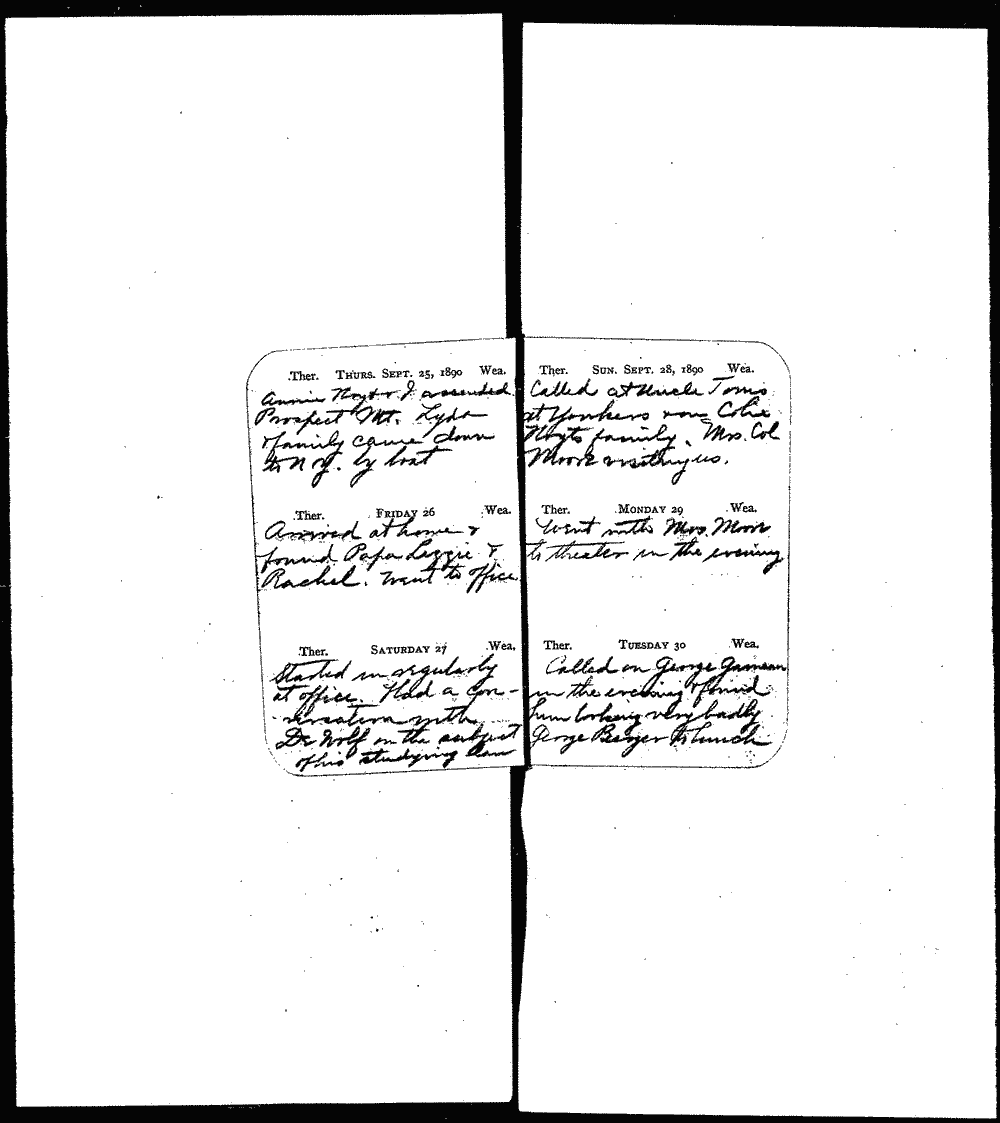 Ther. THURS. SEPT. 25, 1890 Wea.
Annie Hoyt & I ascended
Prospect Mt. Lyda
& family came down
to N.Y. by boat
Ther. FRIDAY 26 Wea.
Arrived at home &
found Papa Lizzie &
Rachel. Went to office
Ther. SATURDAY 27 Wea.
Started in regularly
at office. Had a con-
versation with
De Wolf on the subject
of his studying law
Ther. SUN. SEPT. 28, 1890 Wea.
Called at Uncle Toms
at Yonkers
Hoyts family. Mrs. Col
Moore visiting us.
Ther. MONDAY 29 Wea.
Went with Mrs. Moore
to theater in the evening
Ther. TUESDAY 30 Wea.
Called on George
in the evening & found
him looking very badly
George to lunch